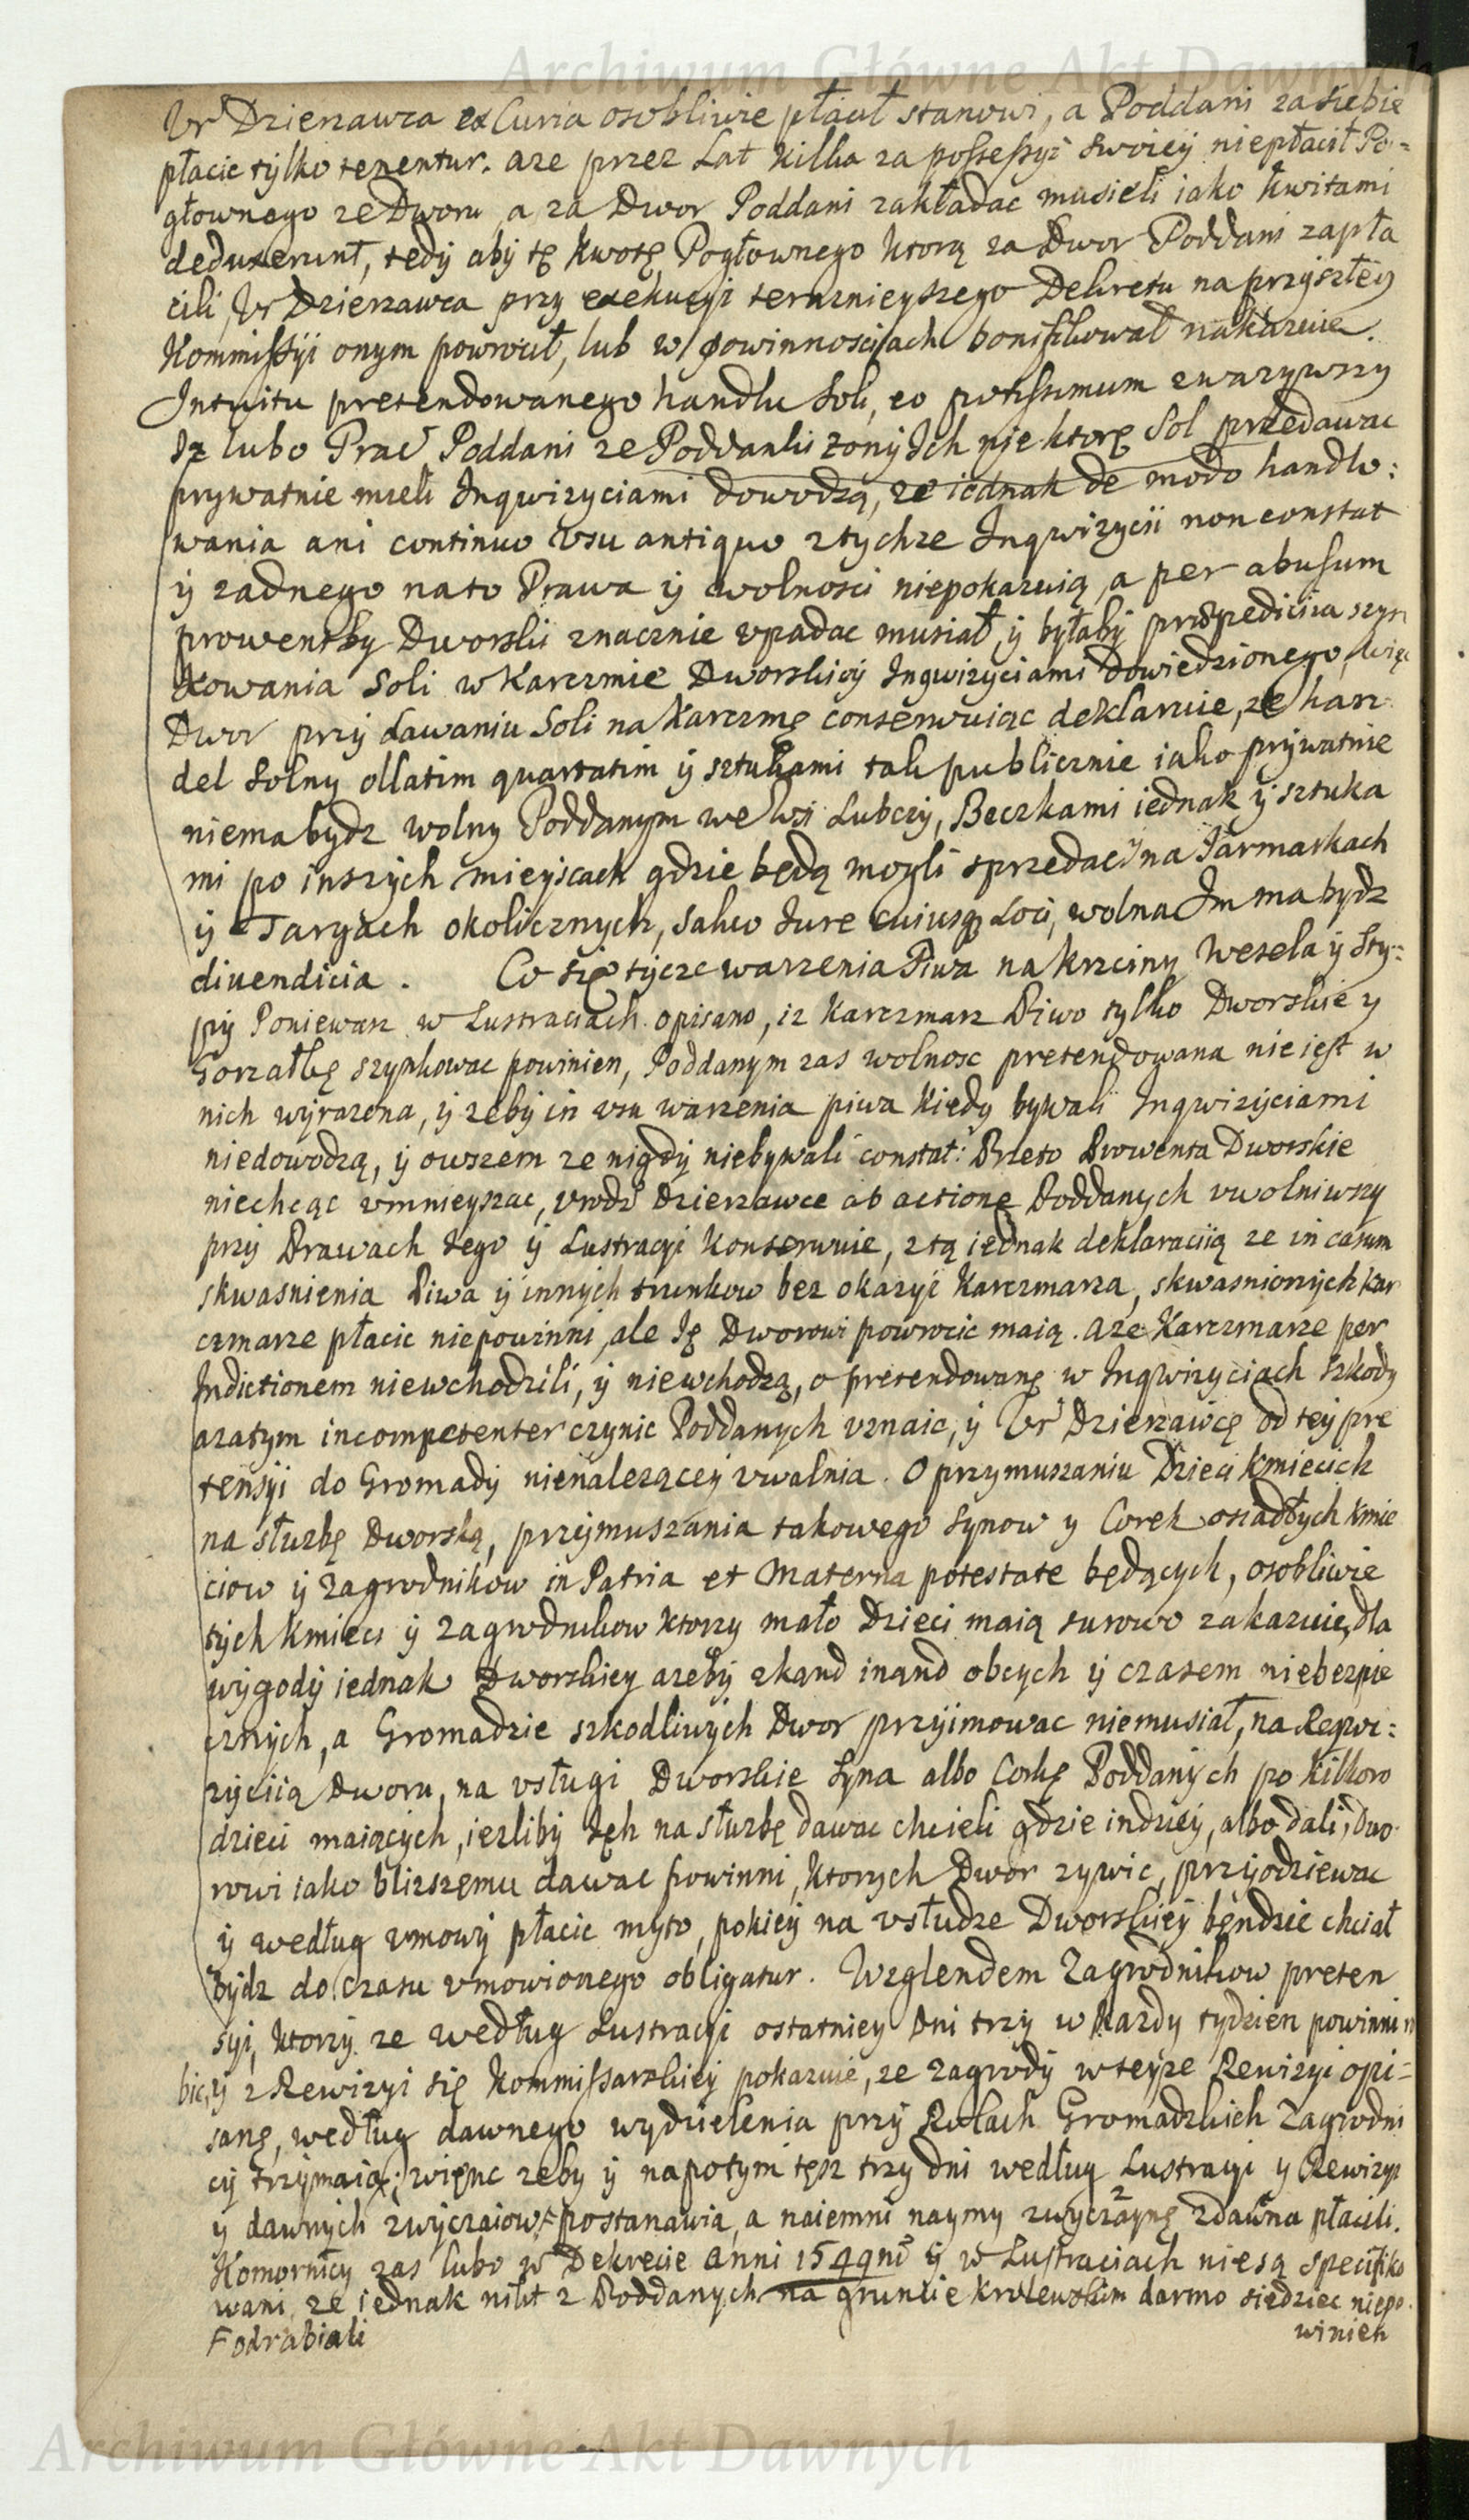 Archiwum Główne Akt Dawnych
Ur Dzierzawca ex Curia osobliwie płacił stanowi, a Poddani za siebie
płacic tylko tenentur. aze przez Lat kilka za possessyi swoiey niepłacił Po=
głownego ze Dworu, a za Dwor Poddani zakładac musieli iako kwitami
deduxerunt, tedy aby tę kwotę Pogłownego ktorą za Dwor Poddani zapła
cili, Ur Dzierzawca przy exekucyi teraznieyszego Dekretu na przyszłey
Kommissyi onym powrocił, lub w powinnosciach bonifikował nakazuie.
Intuitu pretendowanego handlu Soli, eo potissimum zwazywszy
Iz lubo Prac Poddani ze Poddanki zony Ich niektorę Sol przedawac
prywatnie mieli Inqwizyciami dowodzą, ze iednak de modo handlo:
wania ani continuo usu antiquo z tychze Inqwizycii non constat
ÿ zadnego nato Prawa ÿ wolnosci niepokazuią, a per abusum
prowent by Dworski znacznie vpadac musiał, ÿ byłaby przepedicia szyn
kowania Soli w Karczmie Dworskiey Inqwizyciami dowiedzionego, więc
Dwor przy dawaniu Soli na Karczmę conserwuiąc deklaruie, ze han
del Solny ollatim quartatim ÿ sztukami tak publicznie iako prywatnie
niema bydz wolny Poddanym we Wsi Lubczy, Beczkami iednak ÿ sztuka
mi po inszych mieyscach gdzie będą mogli sprzedac ÿ na Jarmarkach
ÿ Targach okolicznych, salvo Iure cuiusq Loci, wolna Im ma bydz
diuendicia. Co się tycze warzenia Piwa na krzciny Wesela ÿ Sty=
py Poniewaz w Lustraciach opisano, iz Karczmarz Piwo tylko Dworskie y
Gorzałkę szynkowac powinien, Poddanym zas wolnosc pretendowana nie iest w
nich wyrazona, ÿ zeby in vsu warzenia piwa kiedy bywali Inqwizyciami
niedowodzą, ÿ owszem ze nigdy niebywali constat: Przeto Prowenta Dworskie
niechcąc vmnieyszac, vrodz Dzierzawce ab actione Poddanych vwolniwszy
przy Prawach Iego ÿ Lustracyi konserwuie, z tą iednak deklaracią ze in casum
skwasnienia Piwa ÿ innych trunkow bez okazyi Karczmarza, skwasnionych Kar
czmarze płacic niepowinni, ale Ię Dworowi powrocic maią. aze Karczmarze per
Indictionem niewchodzili, ÿ niewchodzą, o pretendowanę w Inqwizyciach szkody
azatym incompetenter czynic Poddanych vznaie, ÿ Ur Dzierzawcę od tey pre
tensyi do Gromady nienalezącey vwalnia. O przymuszaniu Dzieci Kmiecich
na słuzbę Dworską, przymuszania takowego Synow y Corek osiadłych kmie
ciow ÿ zagrodnikow in Patria et Materna potestate będących, osobliwie
tych kmieci ÿ zagrodnikow ktorzy mało Dzieci maią surowo zakazuie, dla
wygody iednak Dworskiey azeby zkąnd inąnd obcych ÿ czasem niebezpie
cznych, a Gromadzie szkodliwych Dwor przyimowac niemusiał, na Reqwi=
zycią Dworu, na vsługi Dworskie Syna albo Corkę Poddanych po kilkoro
dzieci maiących, iezliby Ich na słuzbę dawac chcieli gdzie indziey, albo dali, Dwo
rowi iako blizszemu dawac powinni, ktorych Dwor zywic, przyodziewac
ÿ według vmowy płacic myto, pokiey na vsłudze Dworskiey będzie chciał
bydz do czasu vmowionego obligatur. Względem Zagrodnikow preten
syi, ktorzy ze według Lustracyi ostatniey dni trzy w kazdy tydzien powinni ro
bic, ÿ z Rewizyi się Kommissarskiey pokazuie, ze zagrody w teyze Rewizyi opi=
sanę, według dawnego wydzielenia przy Rolach Gromadzkich zagrodni
cy trzymaią; więnc zeby ÿ napotym tęsz trzy dni według Lustracyi y Rewizyi
y dawnych zwyczaiow ⊦ postanawia, a naiemni naymy zwyczaynę zdawna płacili.
Komornicy zas lubo w Dekrecie Anni 1549ni ÿ w Lustraciach niesą specifiko
wani, ze iednak nikt z Poddanych na gruncie krolewskim darmo siedziec niepo
⊦ odrabiali
winien
Archiwum Główne Akt Dawnych